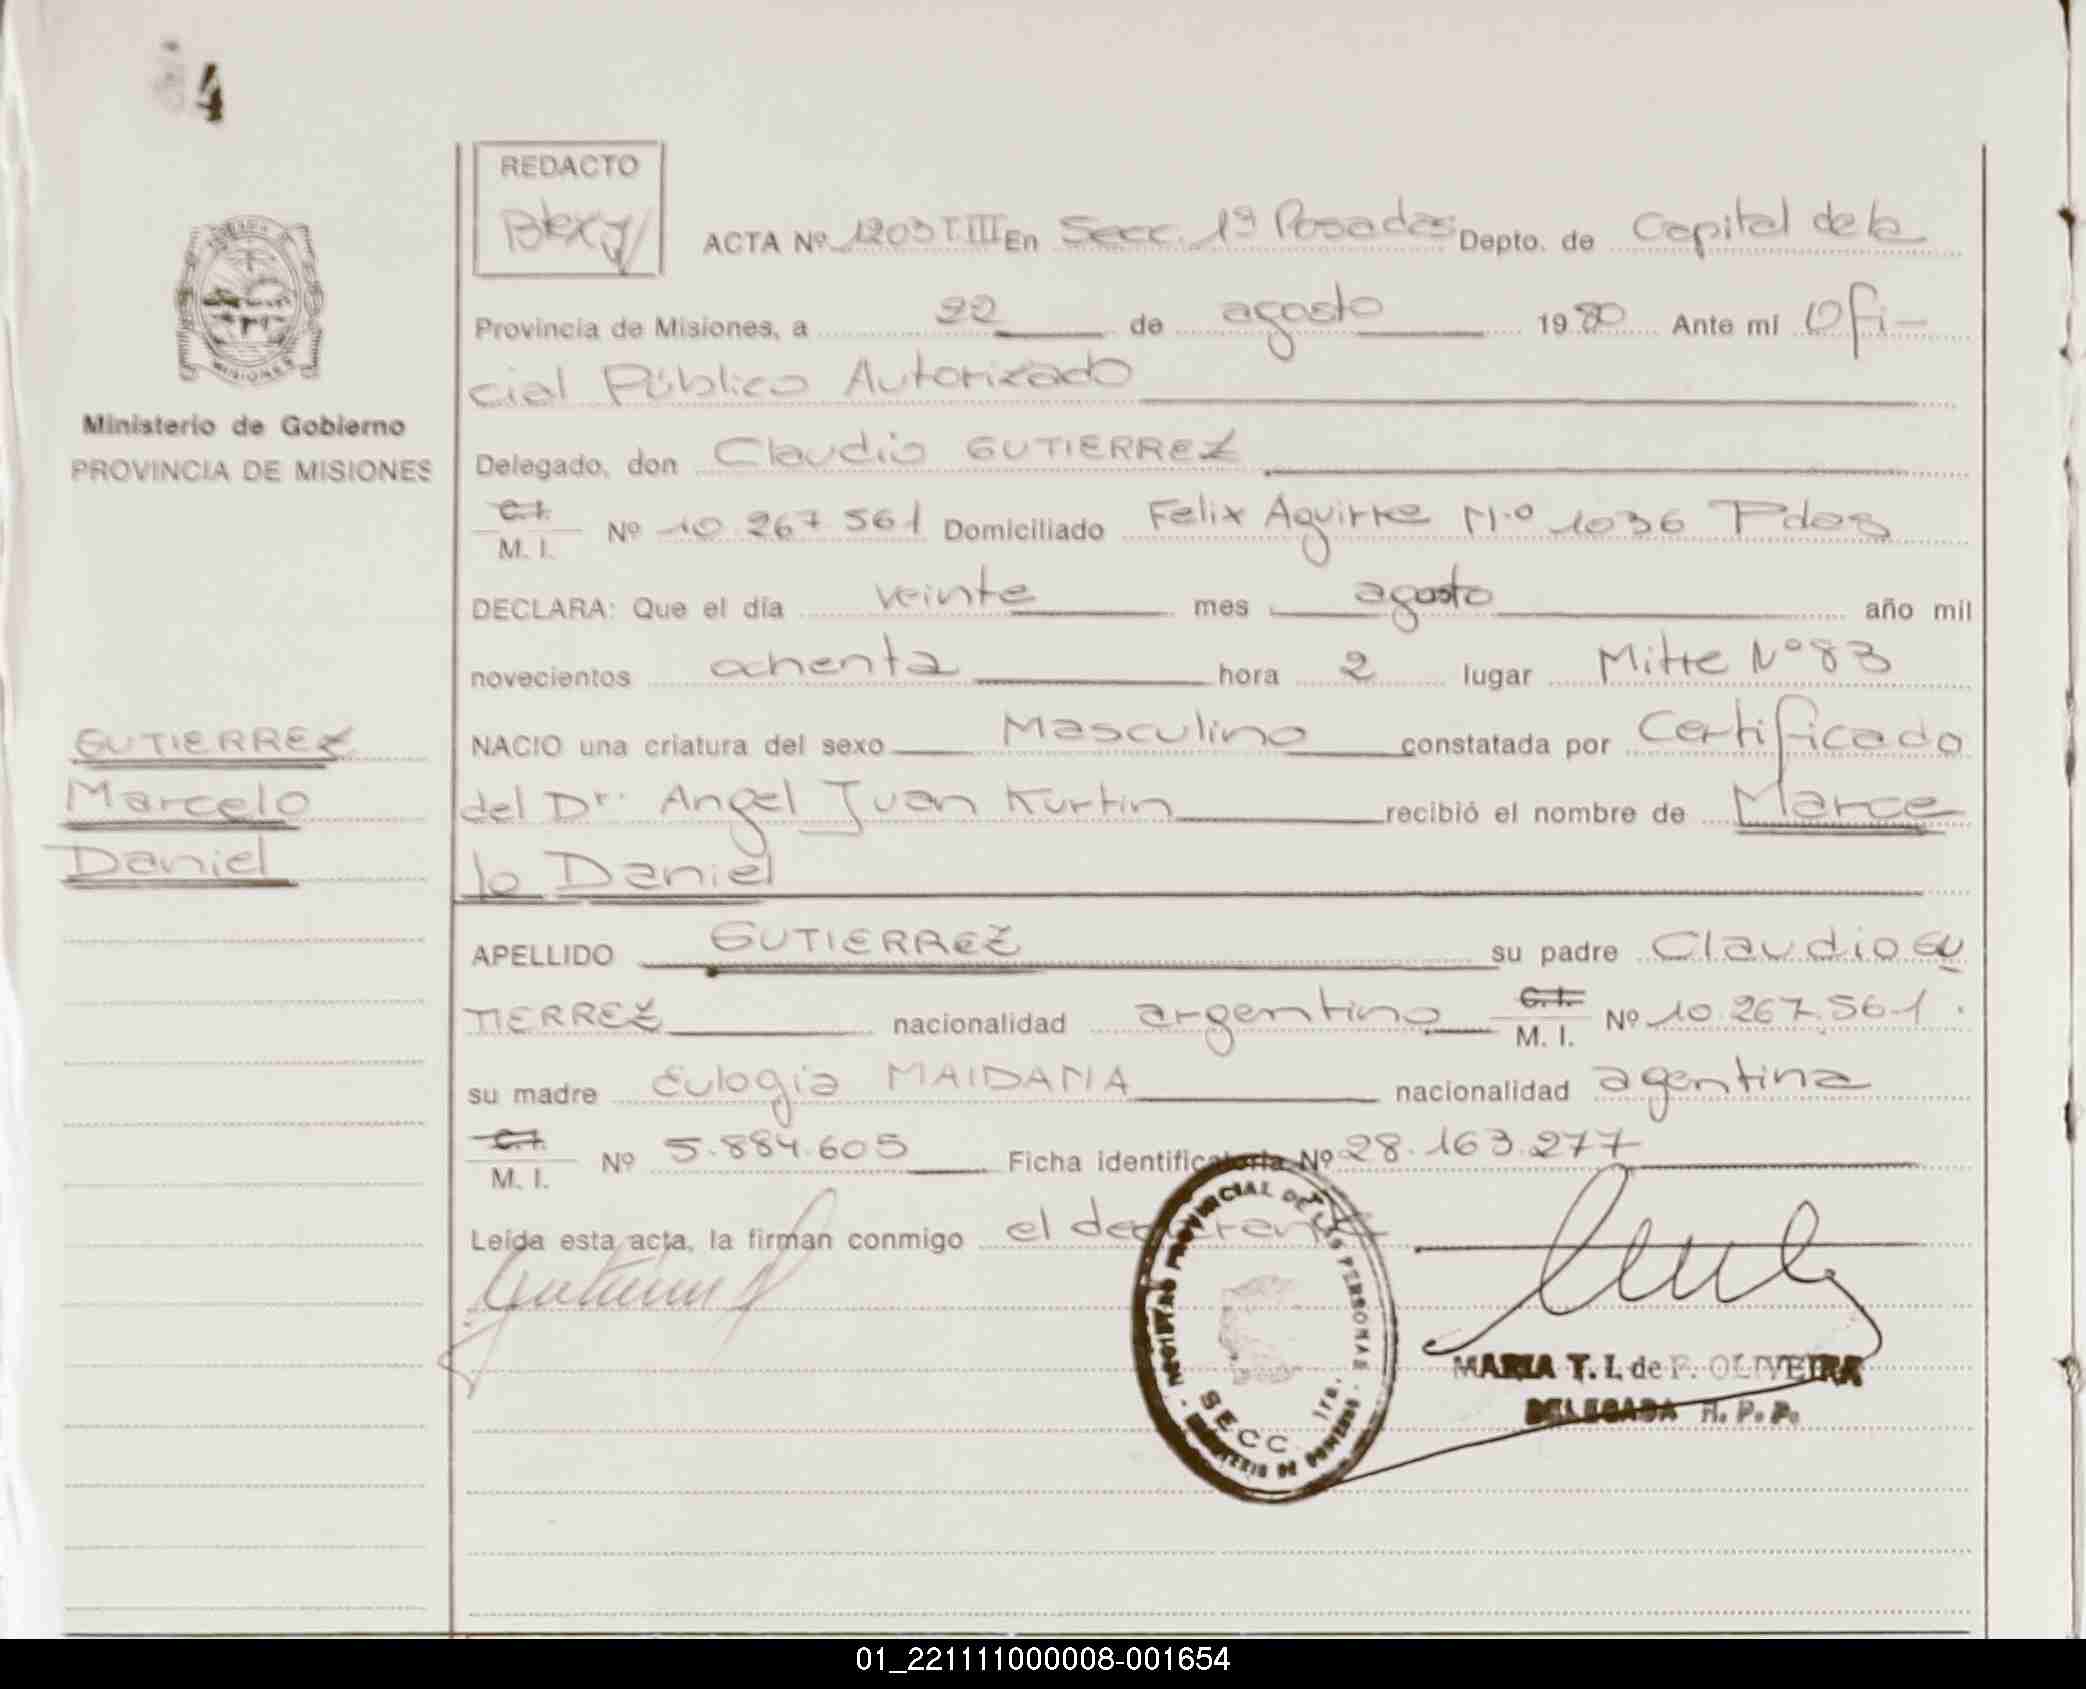 4
REDACTO
ACTA Nº 1203 T.III En Secc. 1ª Posadas Depto. de Capital de la
Provincia de Misiones, a 22 de agosto 1980 Ante mi Ofi-
cial Público Autorizado
Ministerio de Gobierno
PROVINCIA DE MISIONES
Delegado, don Claudio GUTIERREZ
C.I.
M. I. Nº 10.267.561 Domiciliado Felix Aguirre N.º 1036 Pdas
DECLARA: Que el día veinte mes agosto año mil
novecientos ochenta hora 2 lugar Mitre Nº 83
NACIO una criatura del sexo Masculino constatada por Certificado
del Dr. Angel Juan Kurtin recibió el nombre de Marce
lo Daniel
GUTIERREZ
Marcelo
Daniel
APELLIDO GUTIERREZ su padre Claudio GU
TIERREZ nacionalidad argentino C.I. M. I. Nº 10.267.561.
su madre Eulogia MAIDANA nacionalidad agentina
C.I.
M. I. Nº 5.884.605 Ficha identificatoria Nº 28.163.277
Leída esta acta, la firman conmigo el declarante
REGISTRO PROVINCIAL DE LAS PERSONAS
SECC. 1ra.
MINISTERIO DE GOBIERNO
MARIA T. I. de F. OLIVEIRA
DELEGADA R. P. P.
01_221111000008-001654